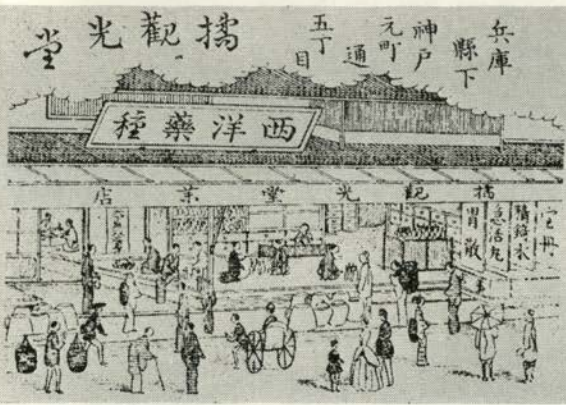 兵庫
縣下
神戸
元町
通
五丁目
橘觀光堂
西洋藥種
橘觀光堂薬店
宝丹
精錡水
胃散